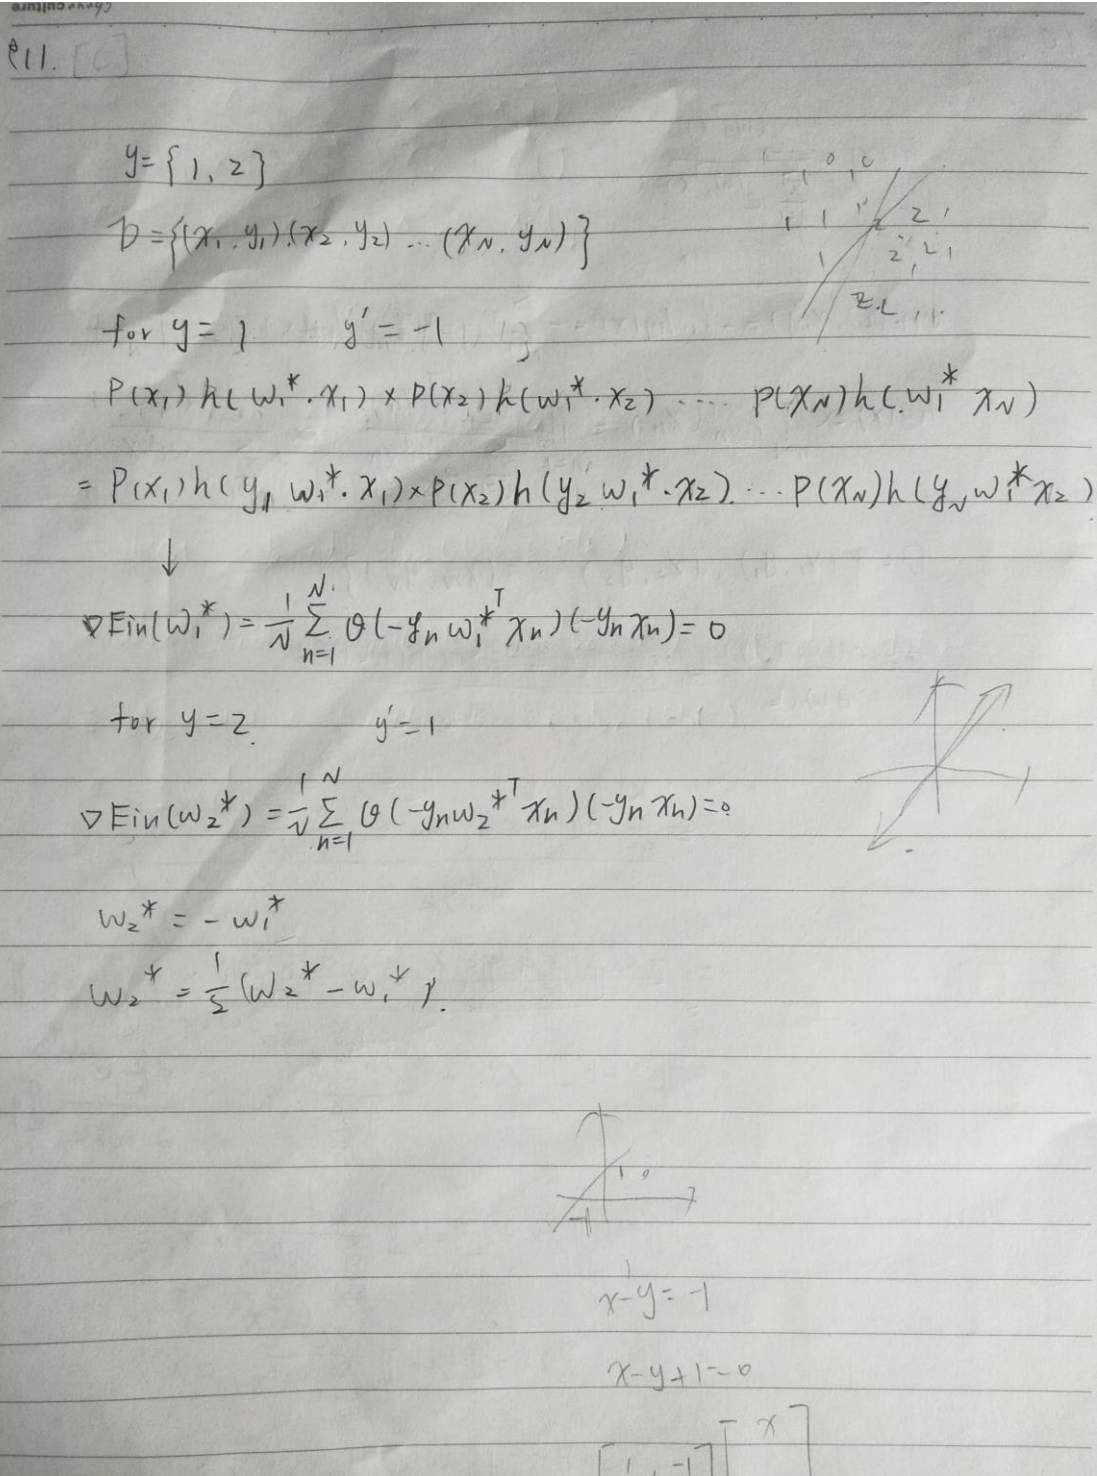 P11. [C]
y = {1, 2}
D = {(x₁, y₁) (x₂, y₂) ... (x_N, y_N)}
for y = 1 y' = -1
P(x₁) h(w₁* · x₁) × P(x₂) h(w₁* · x₂) .... P(x_N) h(w₁* x_N)
= P(x₁) h(y₁ w₁* · x₁) × P(x₂) h(y₂ w₁* · x₂) ... P(x_N) h(y_N w₁* x₂)
↓
▽Ein(w₁*) = 1/N Σ_{n=1}^{N} θ(-y_n w₁*ᵀ x_n)(-y_n x_n) = 0
for y = 2. y' = 1
▽Ein(w₂*) = 1/N Σ_{n=1}^{N} θ(-y_n w₂*ᵀ x_n)(-y_n x_n) = 0
w₂* = - w₁*
w₂* = 1/2 (w₂* - w₁*).
1
-1
x - y = -1
x - y + 1 = 0
[1, -1] [x]